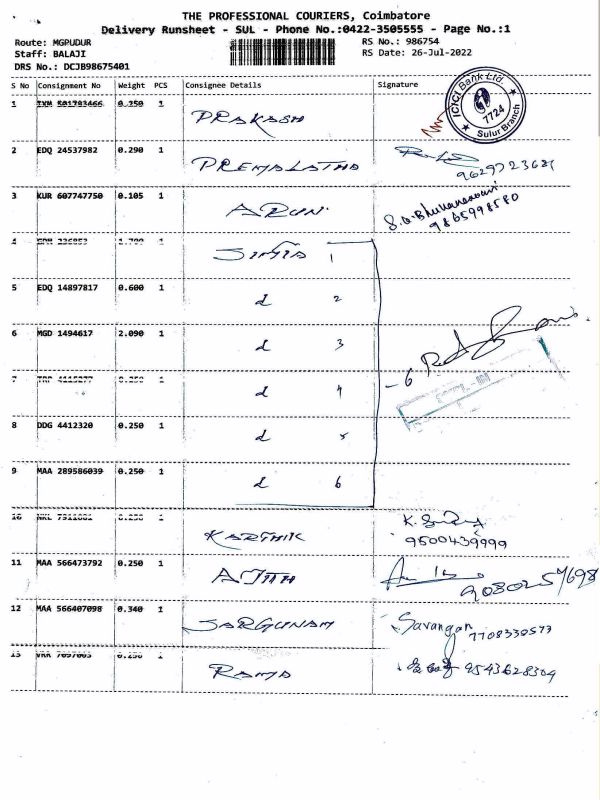 THE PROFESSIONAL COURIERS, Coimbatore
Delivery Runsheet - SUL - Phone No.:0422-3505555 - Page No.:1
Route: MGPUDUR RS No.: 986754
Staff: BALAJI RS Date: 26-Jul-2022
DRS No.: DCJB98675401
S No Consignment No Weight PCS Consignee Details Signature
ICICI Bank Ltd. 7724 Sulur Branch
1 0.250 1 PRAKASH
2 EDQ 24537982 0.290 1 PREMALATHA
3 KUR 607747750 0.105 1 ARUN S.D.Bhuvaneswari
9865998580
4 1
5 EDQ 14897817 0.600 1 d 2
6 MGD 1494617 2.090 1 d 3 - 6
7 1 d 4
8 DDG 4412320 0.250 1 d 5
9 MAA 289586039 0.250 1 d 6
10 1 KARTHIK K.
9500439999
11 MAA 566473792 0.250 1 AJITH 9080257698
12 MAA 566407098 0.340 1 SARGUNAM Savangan 7708330573
13 1 RAMA 9543628304